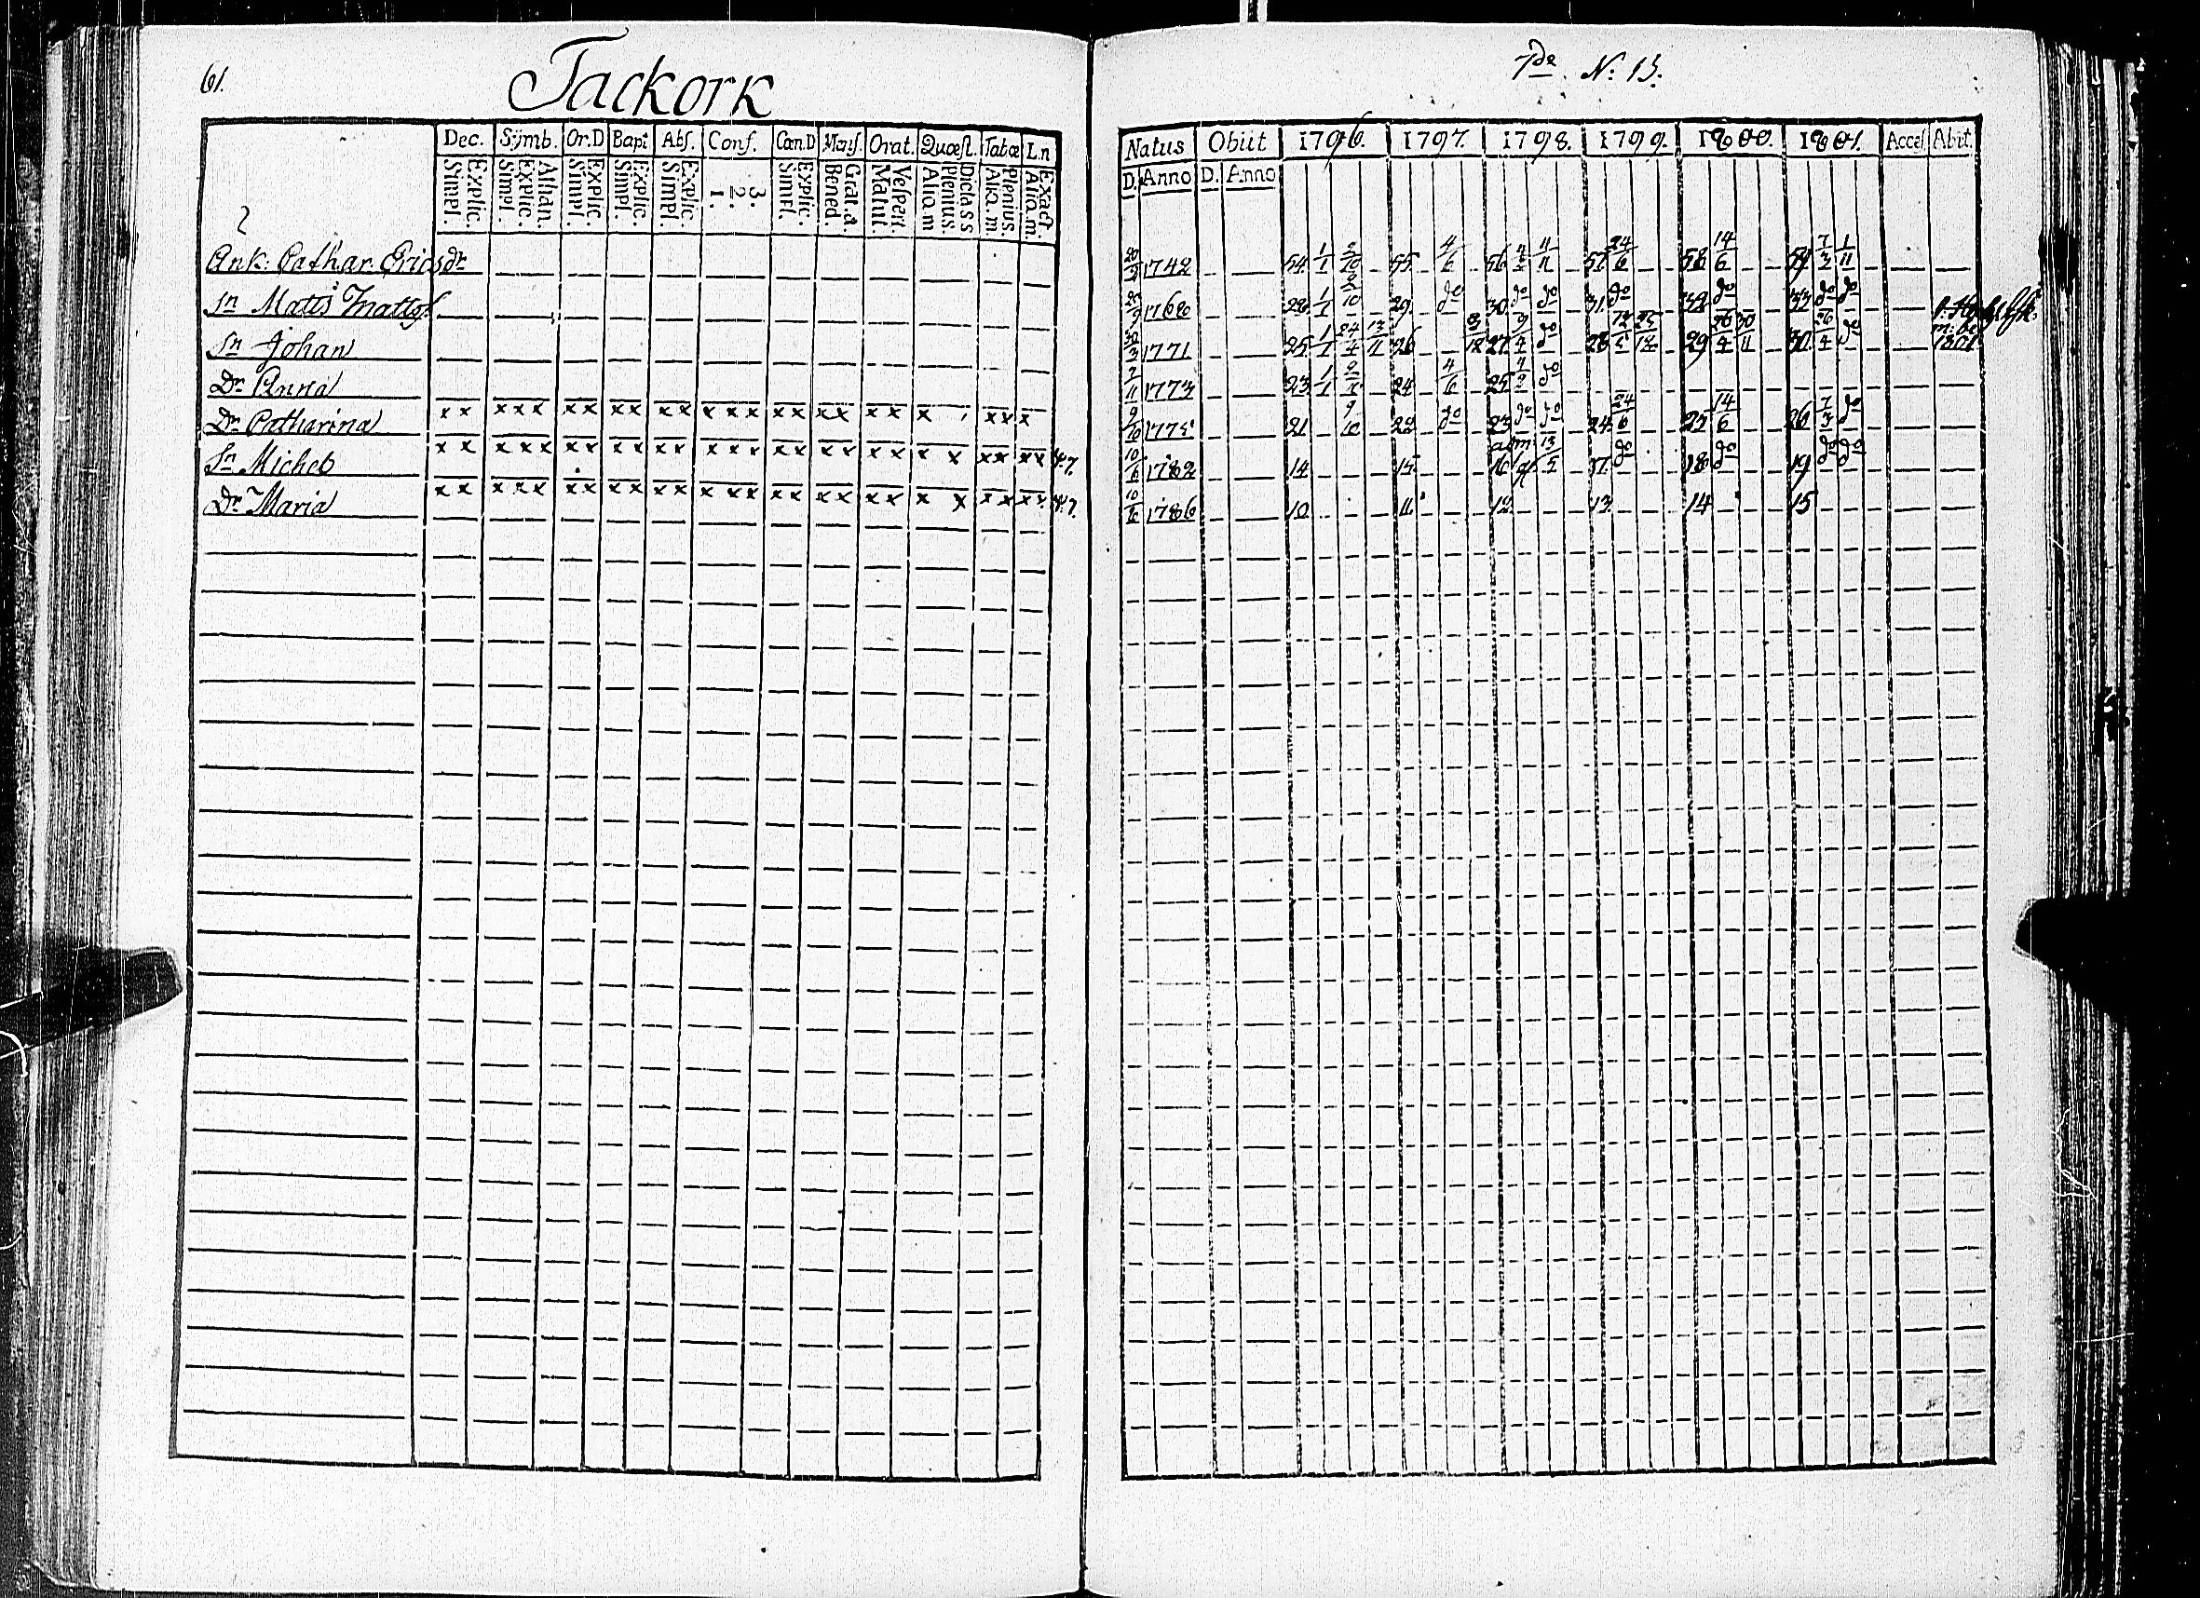 61.
Jackork
7de. No: 13.
Dec. Sÿmb. Or.D Bapt Abs. Conf. Can.D Mens. Orat. Quæst. Tabæ Ln
Explic. Simpl. Athan. Explic. Simpl. Explic Simpl. Explic. Simpl. Explic. Simpl. 3. 2. 1. Explic. Simpl. Grat.a. Bened. Vespert. Matut. Dictass Plenius. Alio.m Plenius. Alia.m. Exact. Alio.m.
Natus Obiit 1796. 1797. 1798. 1799. 1800. 1801. Acces. Abit.
D. Anno D. Anno
2
Ank: Cathar. Ericsdr 1742 54 1/1 2/10 55 4/6 56 4/2 11/11 57 24/6 58 14/6 59 7/3 1/11
Sn Matts Mattss 1768 28 1/1 2/10 29 do 30 do do 31 do 32 do 33 do do
Sn Johan 30/3 1771 25 1/1 24/4 13/11 26 3/12 27 9/4 do 28 12/5 29 26/4 30/11 30 26/4 do 1801
Dr Anna 2/11 1773 23 1/1 24 4/6 25 4/2 do
Dr Catharina x x x x x x x x x x x x x x x x x x x x x x x x 9/10 1775 21 9/10 22 do 23 do do 24 24/6 25 14/6 26 7/3 do
Sn Michel x x x x x x x x x x x x x x x x x x x x x x x x x 4.7. 10/6 1782 14 15 16 13/5 17 do 18 do 19 do do
Dr Maria x x x x x x x x x x x x x x x x x x x x x x x x x 4.7. 1786 10 11 12 13 14 15